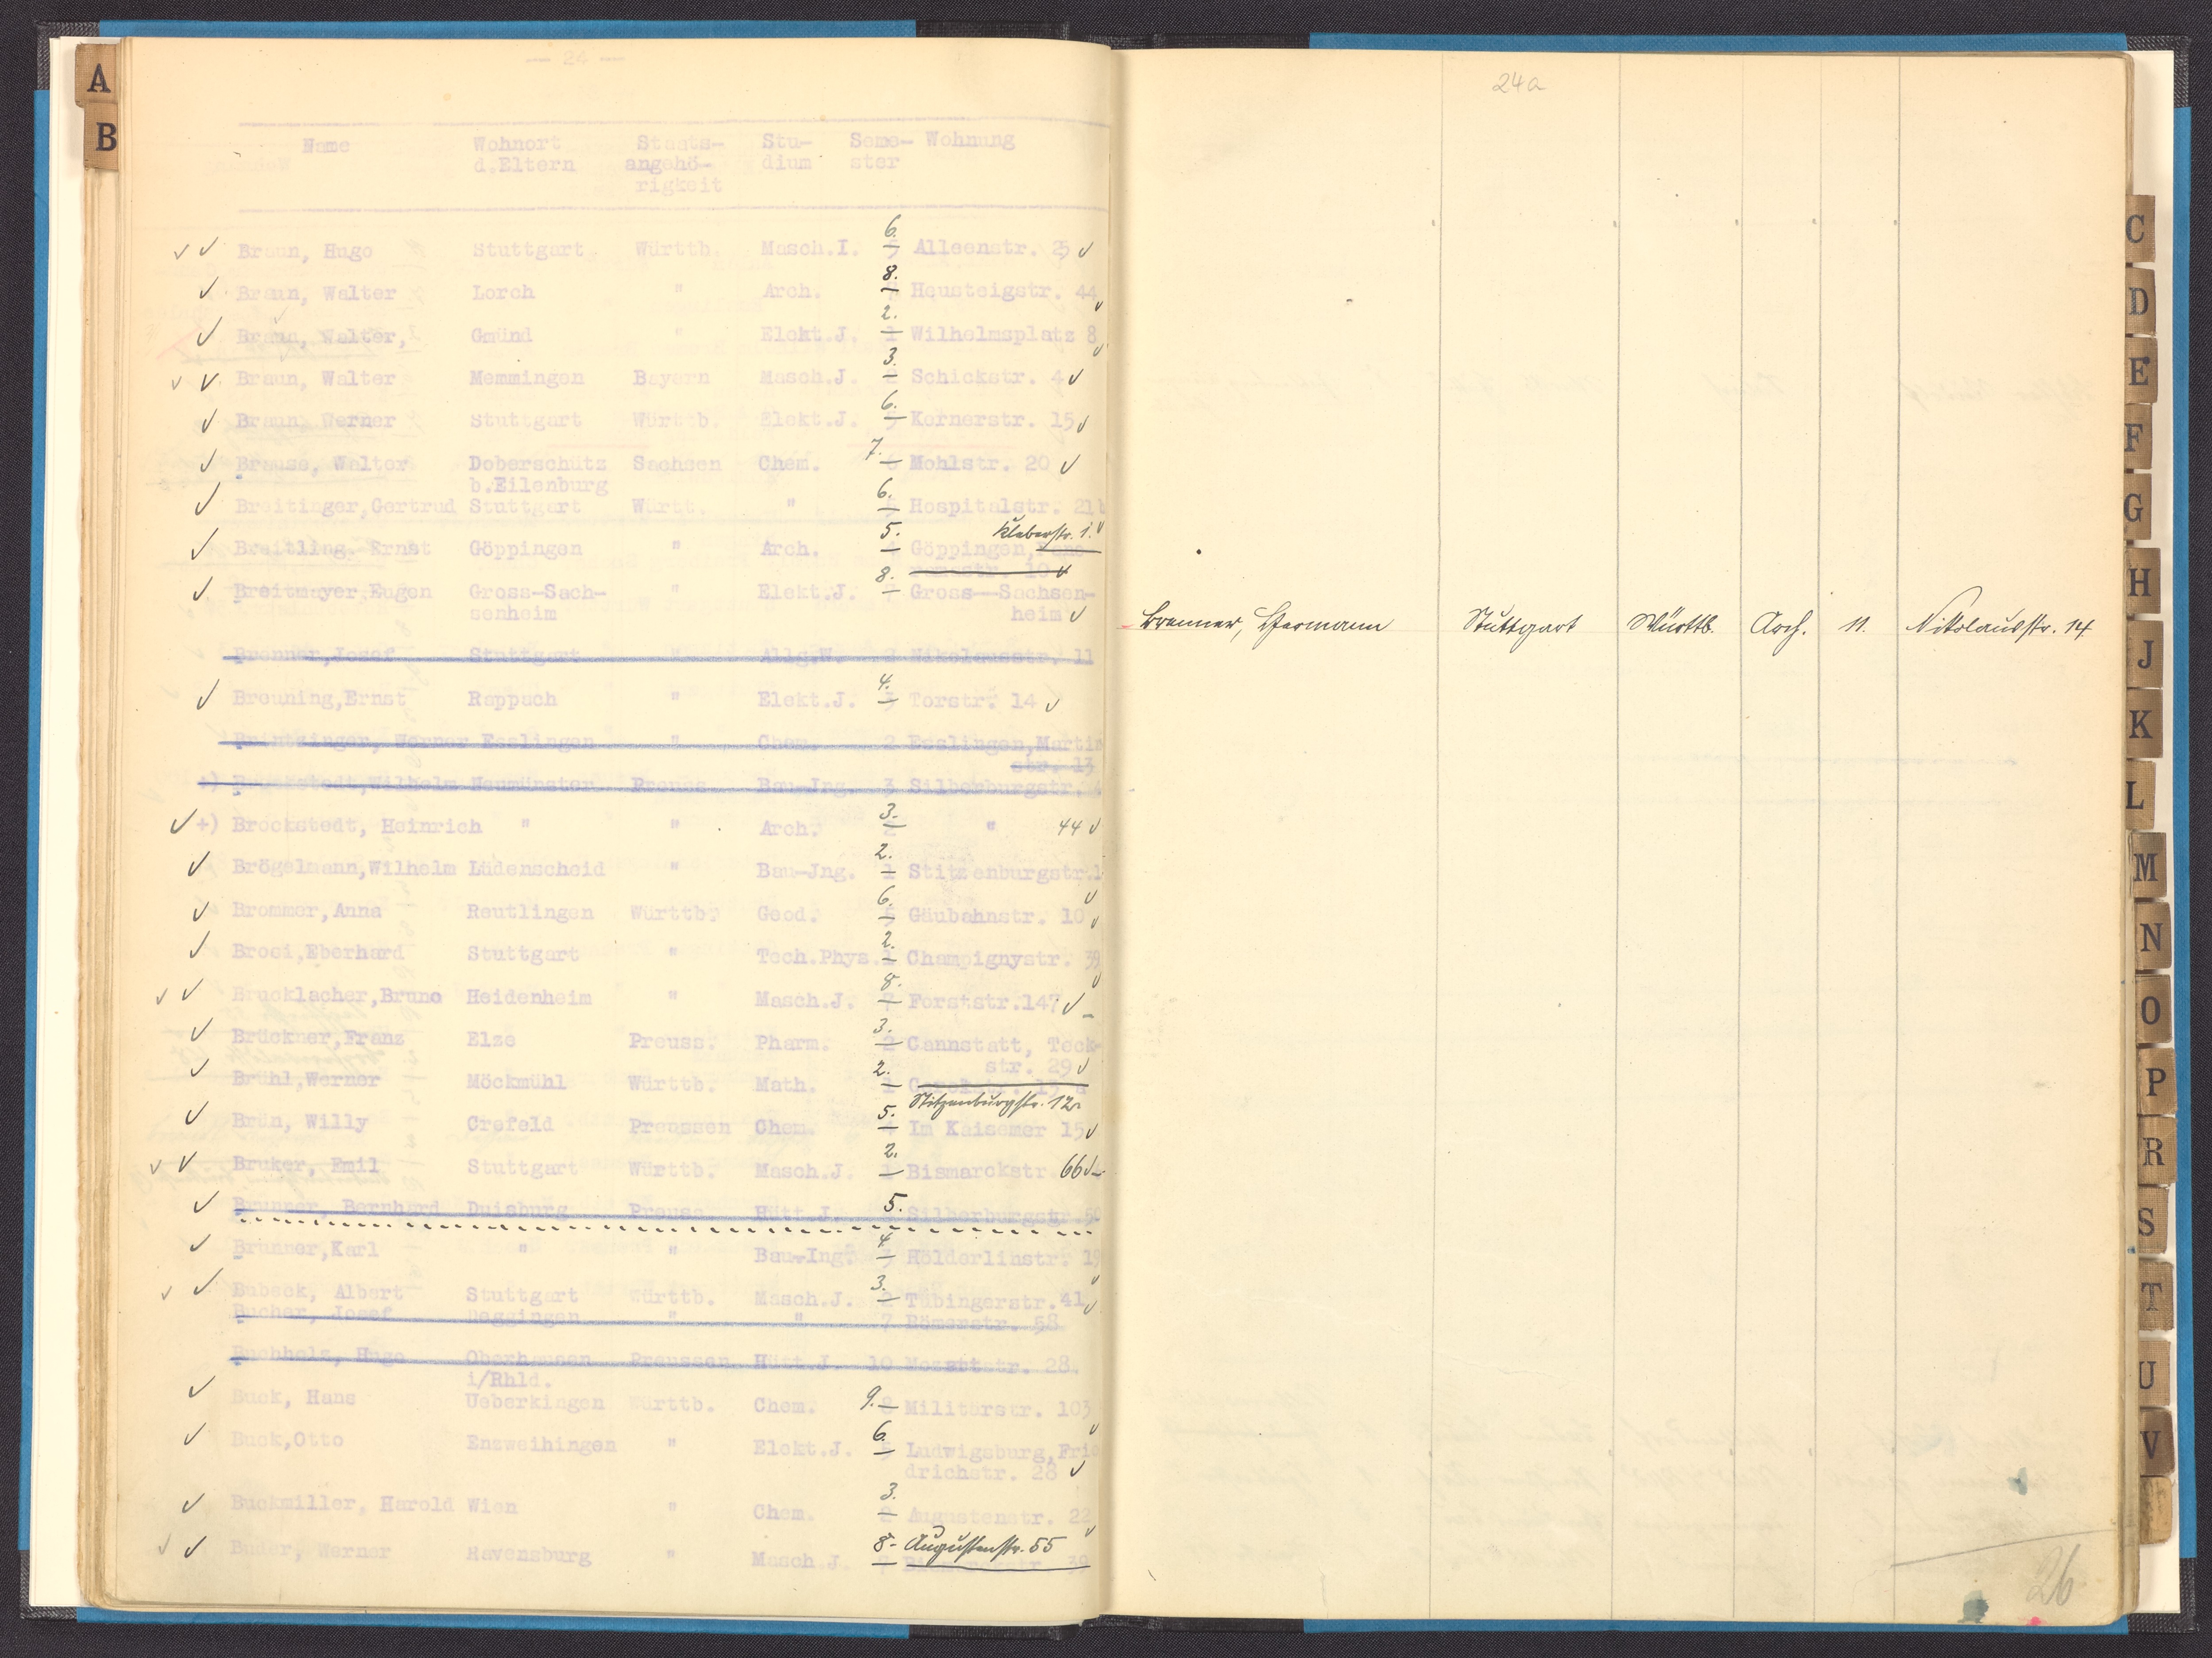 A
B
— 24 —
Name Wohnort Staats- Stu- Seme- Wohnung
d.Eltern angehö- dium ster
rigkeit
6.
Braun, Hugo Stuttgart Württb. Masch.I. 5 Alleenstr. 25
8.
Braun, Walter Lorch " Arch. 7 Heusteigstr. 44
2.
Braun, Walter, Gmünd " Elekt.J. 1 Wilhelmsplatz 8
3.
Braun, Walter Memmingen Bayern Masch.J. 2 Schickstr. 4
6.
Braun Werner Stuttgart Württb. Elekt.J. 5 Kernerstr. 15
7.
Brause, Walter Doberschütz Sachsen Chem. 6 Mohlstr. 20
b.Eilenburg
6.
Breitinger,Gertrud Stuttgart Württ. " 5 Hospitalstr. 21b
5. Kleberstr. 1.
Breitling. Ernst Göppingen " Arch. 4 Göppingen,Pano-
ramastr. 10
8.
Breitmeyer,Eugen Gross-Sach- " Elekt.J. 7 Gross-Sachsen-
senheim heim
Brenner,Josef Stuttgart " Allg.W. 2 Nikolausstr. 11
4.
Breuning,Ernst Rappach " Elekt.J. 3 Torstr. 14
Brintzinger, Werner Esslingen " Chem. 2 Esslingen,Martin
str. 13
+) Brockstedt,Wilhelm Neumünster Preuss. Bau-Jng. 3 Silberburgstr.
3.
+) Brockstedt, Heinrich " " Arch. 2 " 44
2.
Brögelmann,Wilhelm Lüdenscheid " Bau-Jng. 1 Stitzenburgstr.1
6.
Brommer,Anna Reutlingen Württb. Geod. 5 Gäubahnstr. 10
2.
Brosi,Eberhard Stuttgart " Tech.Phys. 1 Champignystr. 39
8.
Brucklacher,Bruno Heidenheim " Masch.J. 7 Forststr.147
3.
Brückner,Franz Elze Preuss. Pharm. 2 Cannstatt, Teck-
str. 29
2.
Brühl,Werner Möckmühl Württb. Math. 1
Stitzenburgstr. 12
5.
Brün, Willy Crefeld Preussen Chem. 4 Im Kaisemer 15
2.
Bruker, Emil Stuttgart Württb. Masch.J. 1 Bismarckstr 66
5.
Brunner, Bernhard Duisburg Preuss. Hütt.J. Silberburgstr.
4
Brunner,Karl " " Bau-Ing. 3 Hölderlinstr. 19
3.
Bubeck, Albert Stuttgart Württb. Masch.J. 2 Tübingerstr. 41
Bucher, Josef Deggingen " " 7 Römerstr. 58
Buchholz, Hugo Oberhausen Preussen Hütt.J. 10 Mozartstr. 28
i/Rhld.
9.
Buck, Hans Ueberkingen Württb. Chem. 8 Militärstr. 103
6.
Buck,Otto Enzweihingen " Elekt.J. 5 Ludwigsburg,Frie
drichstr. 28
3.
Buckmiller, Harold Wien " Chem. 2 Augustenstr. 22
8. Augustenstr. 55
Buder, Werner Ravensburg " Masch.J. 7 Bismarckstr. 39
24a
Brenner, Hermann Stuttgart Württb. Arch. 11. Nikolausstr. 14
26
C
D
E
F
G
H
J
K
L
M
N
O
P
R
S
T
U
V